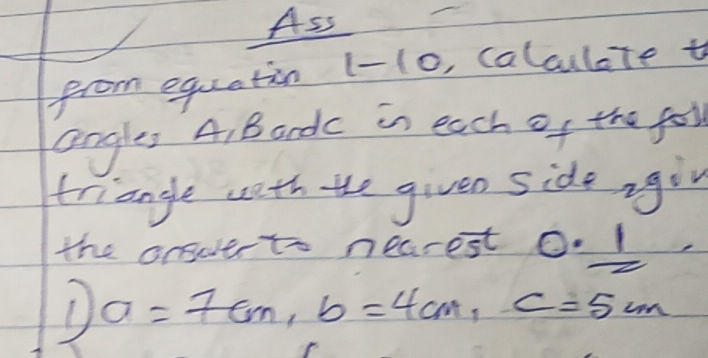 Ass
from equatin 1-10, calculate
angles A, B andc in each of the
triangle with the given side,
the answer to nearest 0.1.
1) a = 7cm, b = 4cm, c = 5cm